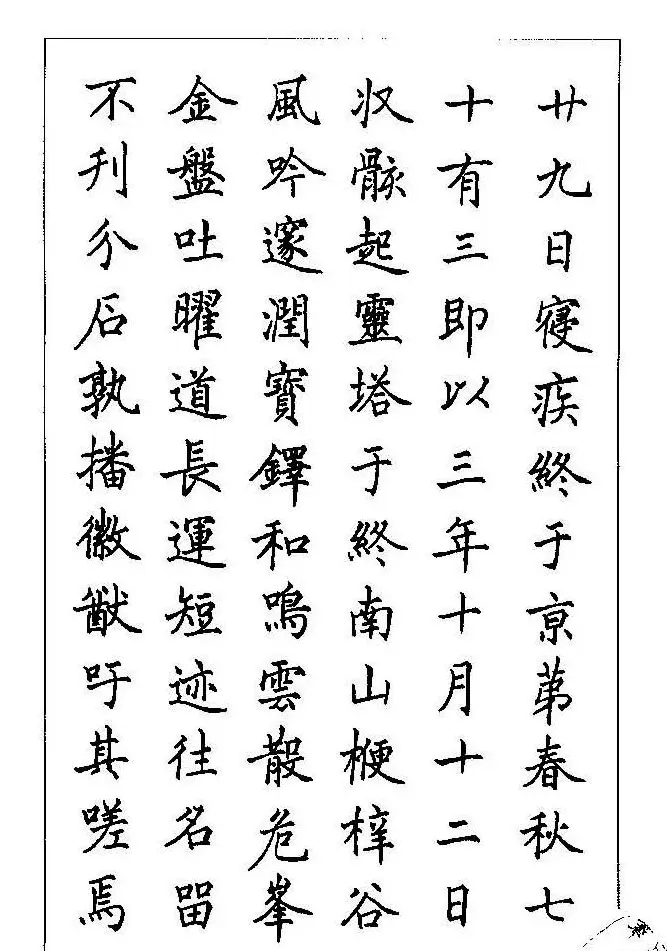 廿九日寑疾終于京苐春秋七
十有三即以三年十月十二日
収骸起靈塔于終南山楩梓谷
風吟邃澗寶鐸和鳴雲散危峯
金盤吐曜道長運短迹往名留
不刋介石孰播徽猷吁其嗟焉